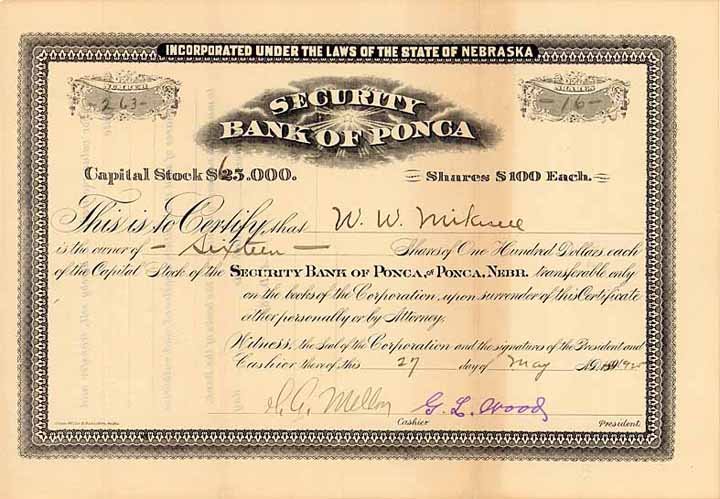 INCORPORATED UNDER THE LAWS OF THE STATE OF NEBRASKA
NUMBER
-263-
SHARES
-16-
SECURITY
BANK OF PONCA
Capital Stock $65.000.
Shares $100 Each.
This is to Certify that W. W. Mikesell
is the owner of - Sixteen - Shares of One Hundred Dollars each
of the Capital Stock of the SECURITY BANK OF PONCA, OF PONCA, NEBR. transferable only
on the books of the Corporation, upon surrender of this Certificate
either personally or by Attorney.
Witness, the Seal of the Corporation and the signatures of the President and
Cashier thereof this 27 day of May A.D. 1920
Mellon G. L. Wood
Cashier President.